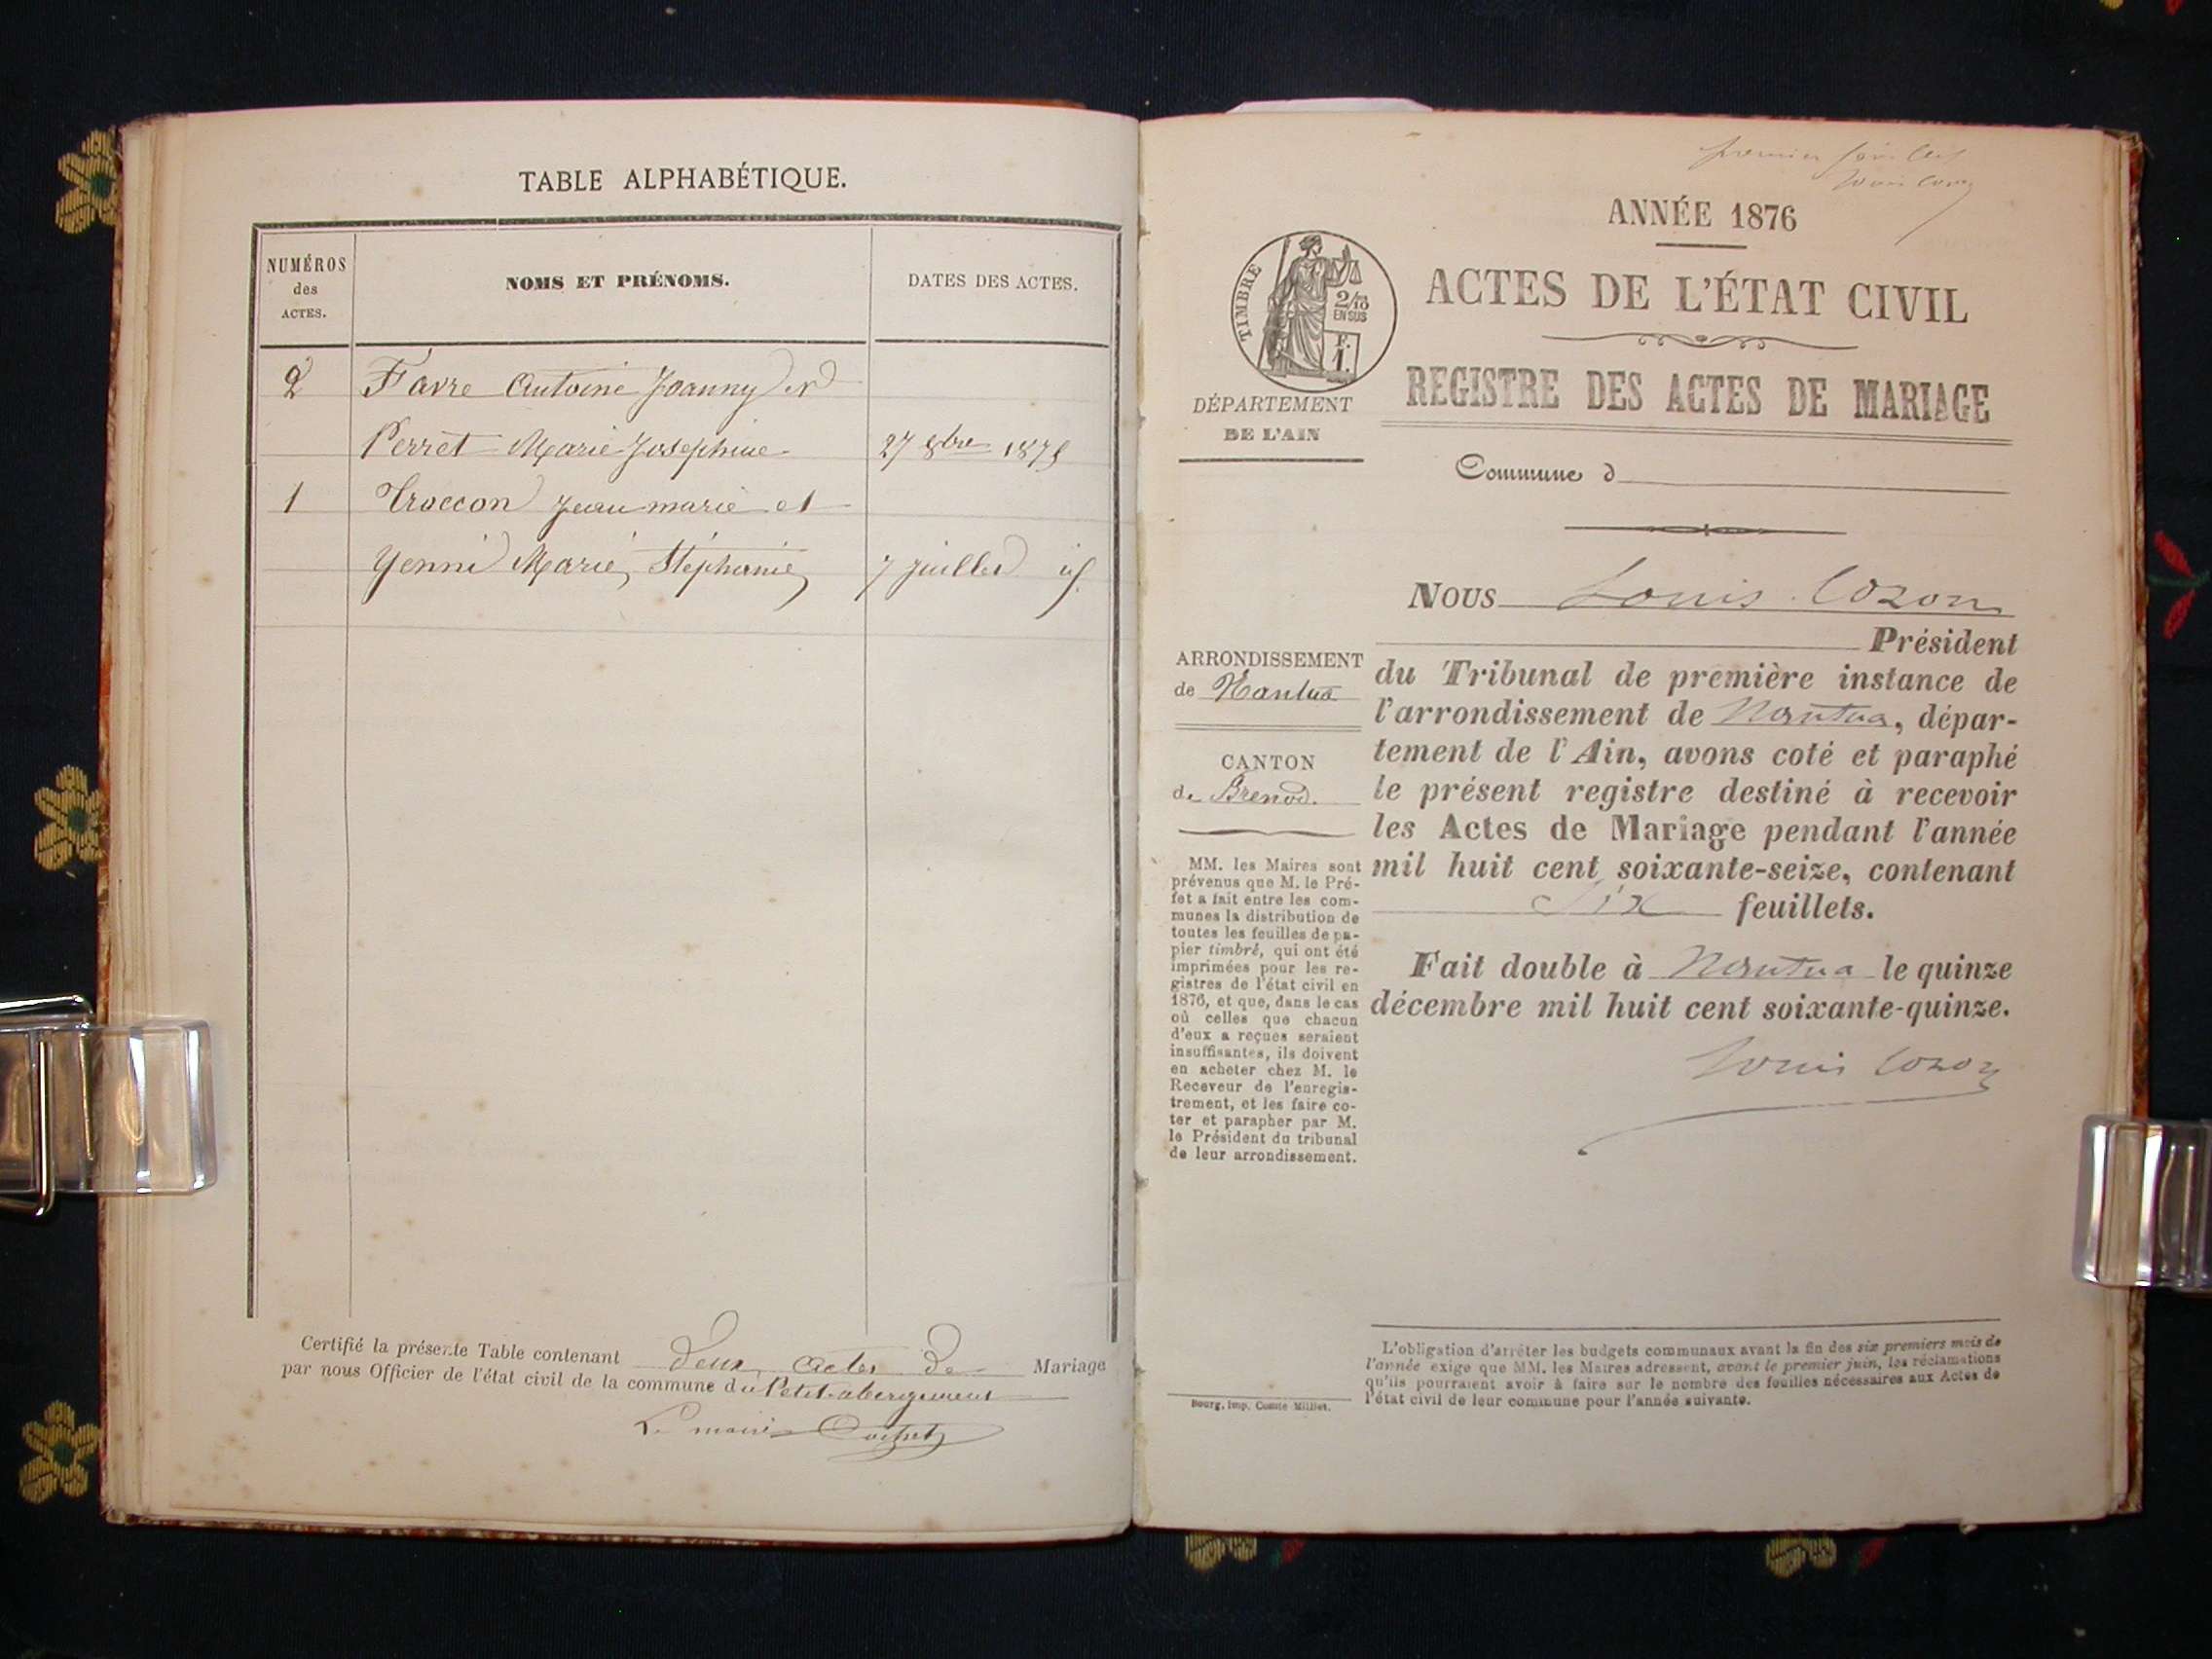 TABLE ALPHABÉTIQUE.
NUMÉROS
des
ACTES.
NOMS ET PRÉNOMS.
DATES DES ACTES.
2 Favre Antoine Joanny et
Perret Marie Josephine 27 8bre 1875
1 Troccon Jean marie et
Yenni Marie Stéphanie 7 juillet id
Certifié la présente Table contenant deux actes de Mariage
par nous Officier de l'état civil de la commune du Petit abergement
Le maire
premier feuillet
Louis Cozon
ANNÉE 1876
TIMBRE
2/10
EN SUS
F.
1.
ACTES DE L'ÉTAT CIVIL
REGISTRE DES ACTES DE MARIAGE
DÉPARTEMENT
DE L'AIN
Commune d
Nous Louis Cozon
Président
du Tribunal de première instance de
l'arrondissement de Nantua, dépar-
tement de l'Ain, avons coté et paraphé
le présent registre destiné à recevoir
les Actes de Mariage pendant l'année
mil huit cent soixante-seize, contenant
Six feuillets.
Fait double à Nantua le quinze
décembre mil huit cent soixante-quinze.
Louis Cozon
ARRONDISSEMENT
de Nantua
CANTON
de Brenod.
MM. les Maires sont
prévenus que M. le Pré-
fet a fait entre les com-
munes la distribution de
toutes les feuilles de pa-
pier timbré, qui ont été
imprimées pour les re-
gistres de l'état civil en
1876, et que, dans le cas
où celles que chacun
d'eux a reçues seraient
insuffisantes, ils doivent
en acheter chez M. le
Receveur de l'enregis-
trement, et les faire co-
ter et parapher par M.
le Président du tribunal
de leur arrondissement.
Bourg, imp. Comte Milliet.
L'obligation d'arrêter les budgets communaux avant la fin des six premiers mois de
l'année exige que MM. les Maires adressent, avant le premier juin, les réclamations
qu'ils pourraient avoir à faire sur le nombre des feuilles nécessaires aux Actes de
l'état civil de leur commune pour l'année suivante.